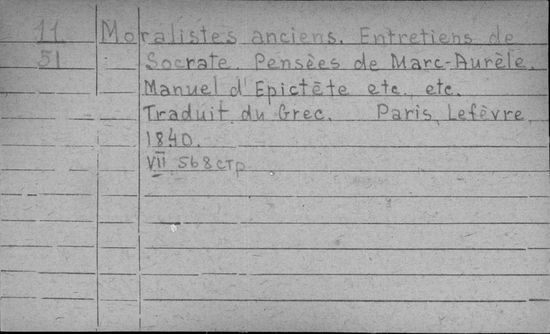 11 Moralistes anciens. Entretiens de
51 Socrate. Pensées de Marc-Aurèle.
Manuel d'Epictète etc., etc.
Traduit du Grec. Paris, Lefèvre,
1840.
VII 568 стр